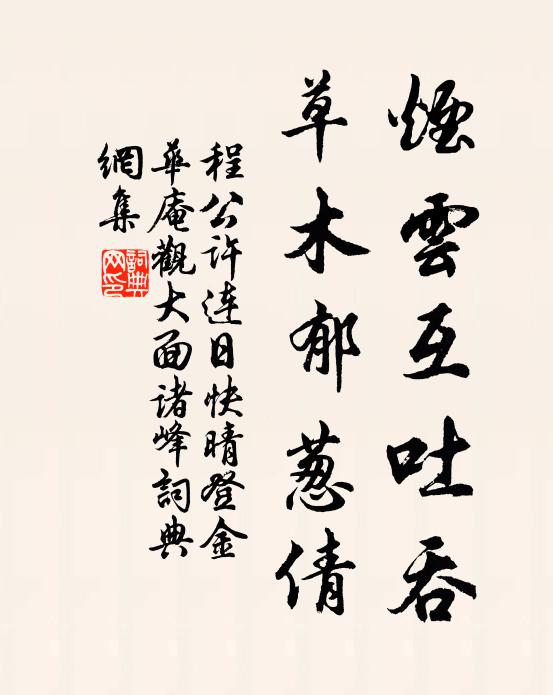 煙雲互吐吞
草木郁葱倩
程公许连日快晴登金
華庵觀大面诸峰詞典
網集
詞典网印